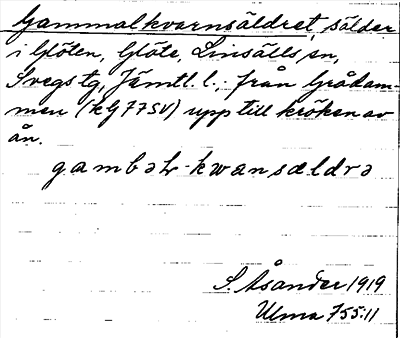 Gammalkvarnsäldret, sälder
i Glöten, Glöte, Linsälls sn,
Svegs tg, Jämtl. l.; från Grådam-
men (k G 77 SV) upp till kröken av
ån.
gambəƚ-kwansældrə
S. Åsander 1919
Ulma 755:11